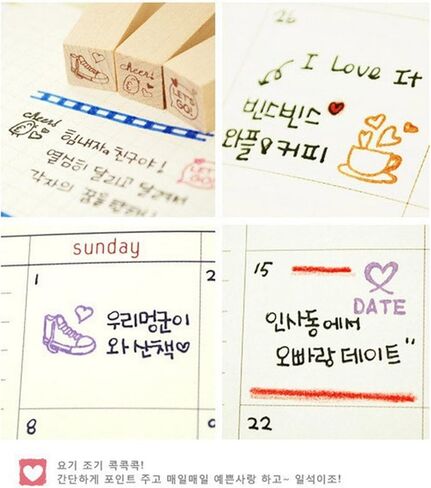 cheer!
LET'S GO!
cheer!
힘내자, 친구야!
열심히 달리고 달려서
LET'S GO!
각자의 꿈을
26
I Love It
빈스빈스
와플&커피
sunday
1
2
우리멍군이
와 산책
8
15
DATE
인사동에서
오빠랑 데이트"
22
요기 조기 콕콕콕!
간단하게 포인트 주고 매일매일 예쁜사랑 하고~ 일석이조!